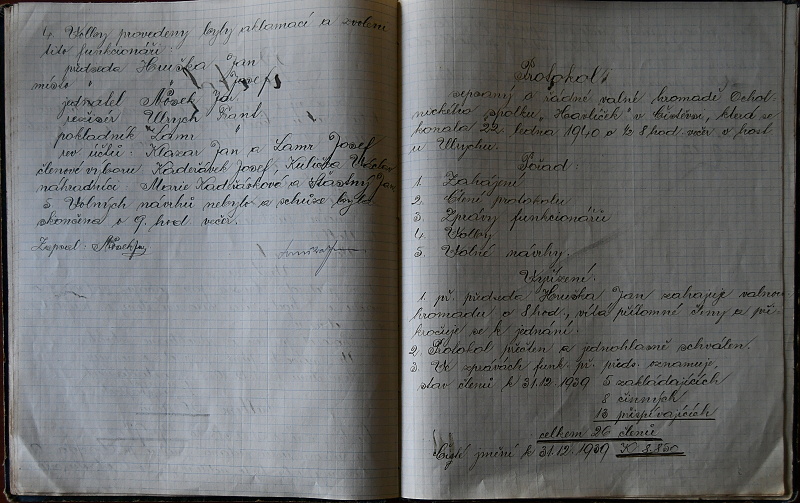 4. Volby provedeny byly aklamací a zvoleni
tito funkcionáři:
předseda Hruška Jan
místo " Josef
jednatel Mosek Jar.
režisér Ulrych Frant.
pokladník Lamr "
rev. účtů: Klazar Jan a Lamr Josef
členové výboru: Kadeřávek Josef, Kulička Václav
náhradníci: Marie Kadeřávková a Šťastný Jan
5. Volných návrhů nebylo a schůze byla
skončena o 9. hod. večer.
Zapsal: Mosek Jar.
Protokol
sepsaný o řádné valné hromadě Ochot-
nického spolku „Havlíček" v Čistěvsi, která se
konala 22. ledna 1940 o ½ 8 hod. večer v host.
u Ulrychů.
Pořad:
1. Zahájení
2. Čtení protokolu
3. Zprávy funkcionářů
4. Volby
5. Volné návrhy.
Vyřízení:
1. př. předseda Hruška Jan zahajuje valnou
hromadu o 8 hod., vítá přítomné členy a při-
kračuje se k jednání.
2. Protokol přečten a jednohlasně schválen.
3. Ve zprávách funk. př. předs. oznamuje,
stav členů k 31.12.1939 5 zakládajících
8 činných
13 přispívajících
celkem 26 členů
Čisté jmění k 31.12.1939